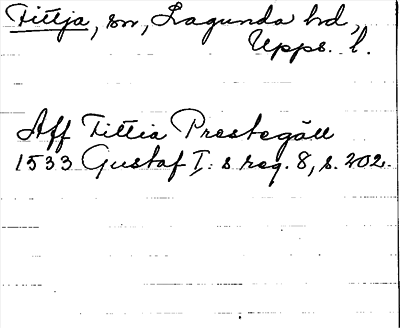 Fittja, sn, Lagunda hd,
Upps. l.
Aff Fittia Prestegåll
1533 Gustaf I:s reg. 8, s. 202.